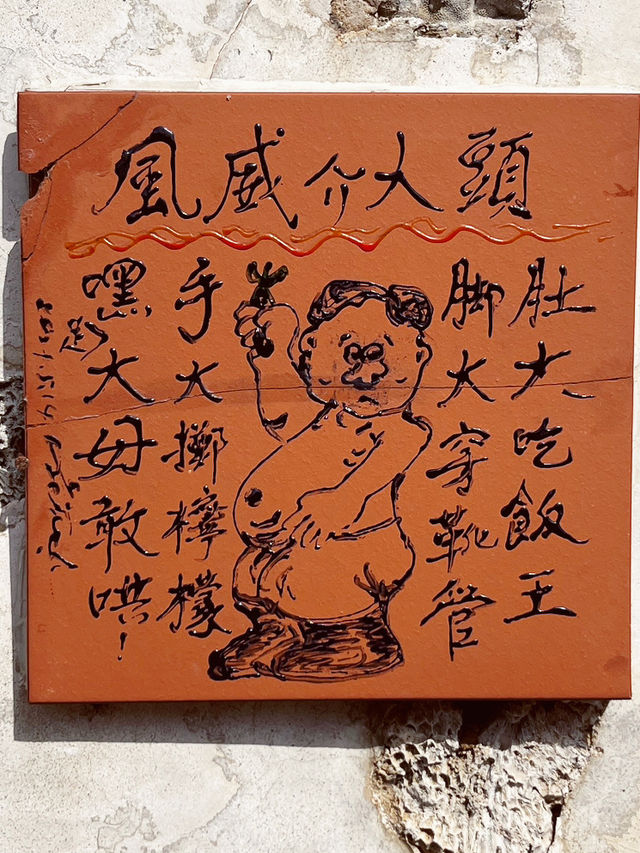 頭大介威風
肚大吃飯王
脚大穿靴管
手大擲檸檬
嘿大毋敢哄！